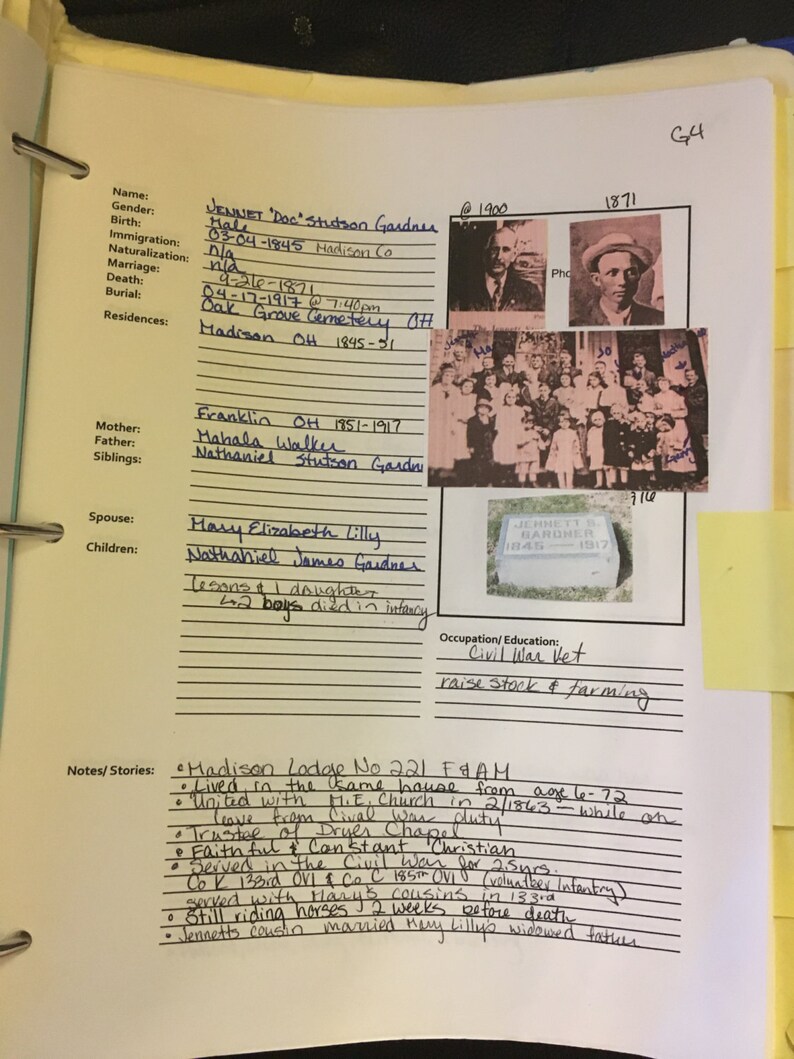 G4
Name: JENNET "Doc" Stutson Gardner
Gender: Male
Birth: 03-04-1845 Madison Co
Immigration: n/a
Naturalization: n/a
Marriage: 9-26-1871
Death: 04-17-1917 @ 7:40pm
Burial: Oak Grove Cemetery OH
Residences: Madison OH 1845-51
Franklin OH 1851-1917
Mother: Mahala Walker
Father: Nathaniel Stutson Gardn
Siblings:
Spouse: Mary Elizabeth Lilly
Children: Nathaniel James Gardner
sons & 1 daughter
2 boys died in infancy
@ 1900
1871
Pho
The Jennett
Jo
JENNETT S.
GARDNER
1845 — 1917
Occupation/Education:
Civil War Vet
raise stock & farming
Notes/ Stories: • Madison Lodge No 221 F&AM
• Lived in the same house from age 6-72
• United with M.E. Church in 2/1863 — while on
leave from Cival War duty
• Trustee of Dryer Chapel
• Faithful & Constant Christian
• Served in the Civil War for 2.5yrs.
Co K 133rd OVI & Co C 185th OVI (volunteer Infantry)
served with Mary's cousins in 133rd
• Still riding horses 2 weeks before death
• Jennetts cousin married Mary Lilly's widowed father